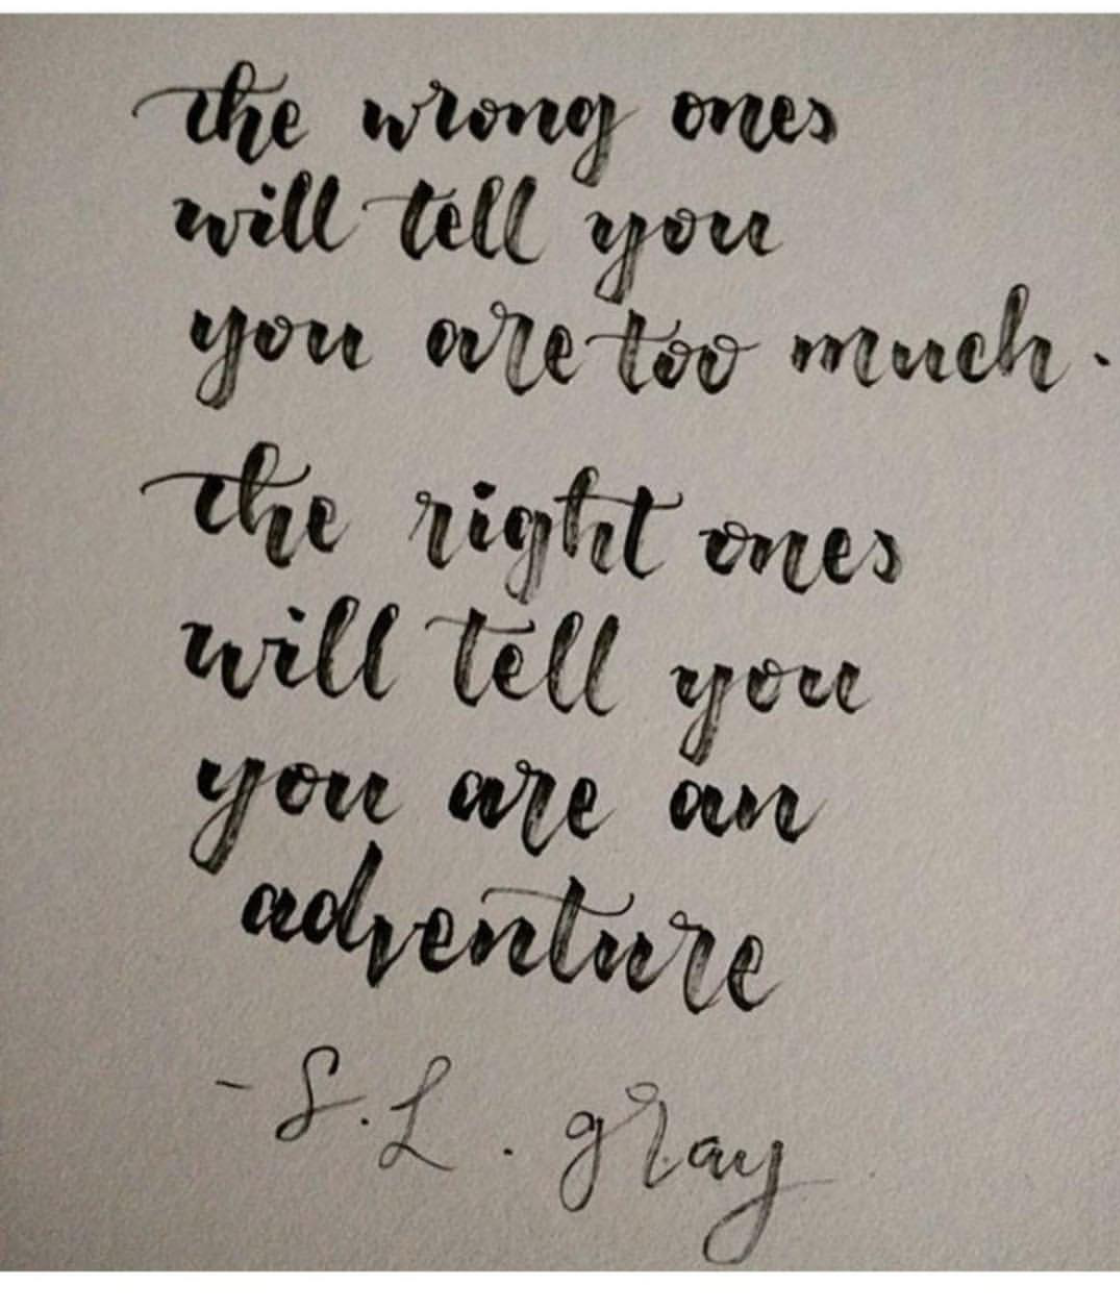 the wrong ones
will tell you
you are too much.
the right ones
will tell you
you are an
adventure
- S. L. gray